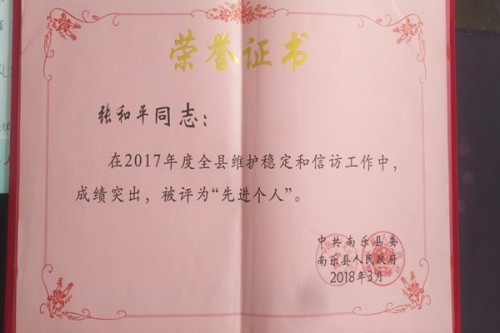 荣誉证书
张和平同志：
在2017年度全县维护稳定和信访工作中，
成绩突出，被评为“先进个人”。
中共南乐县委
南乐县人民政府
2018年3月